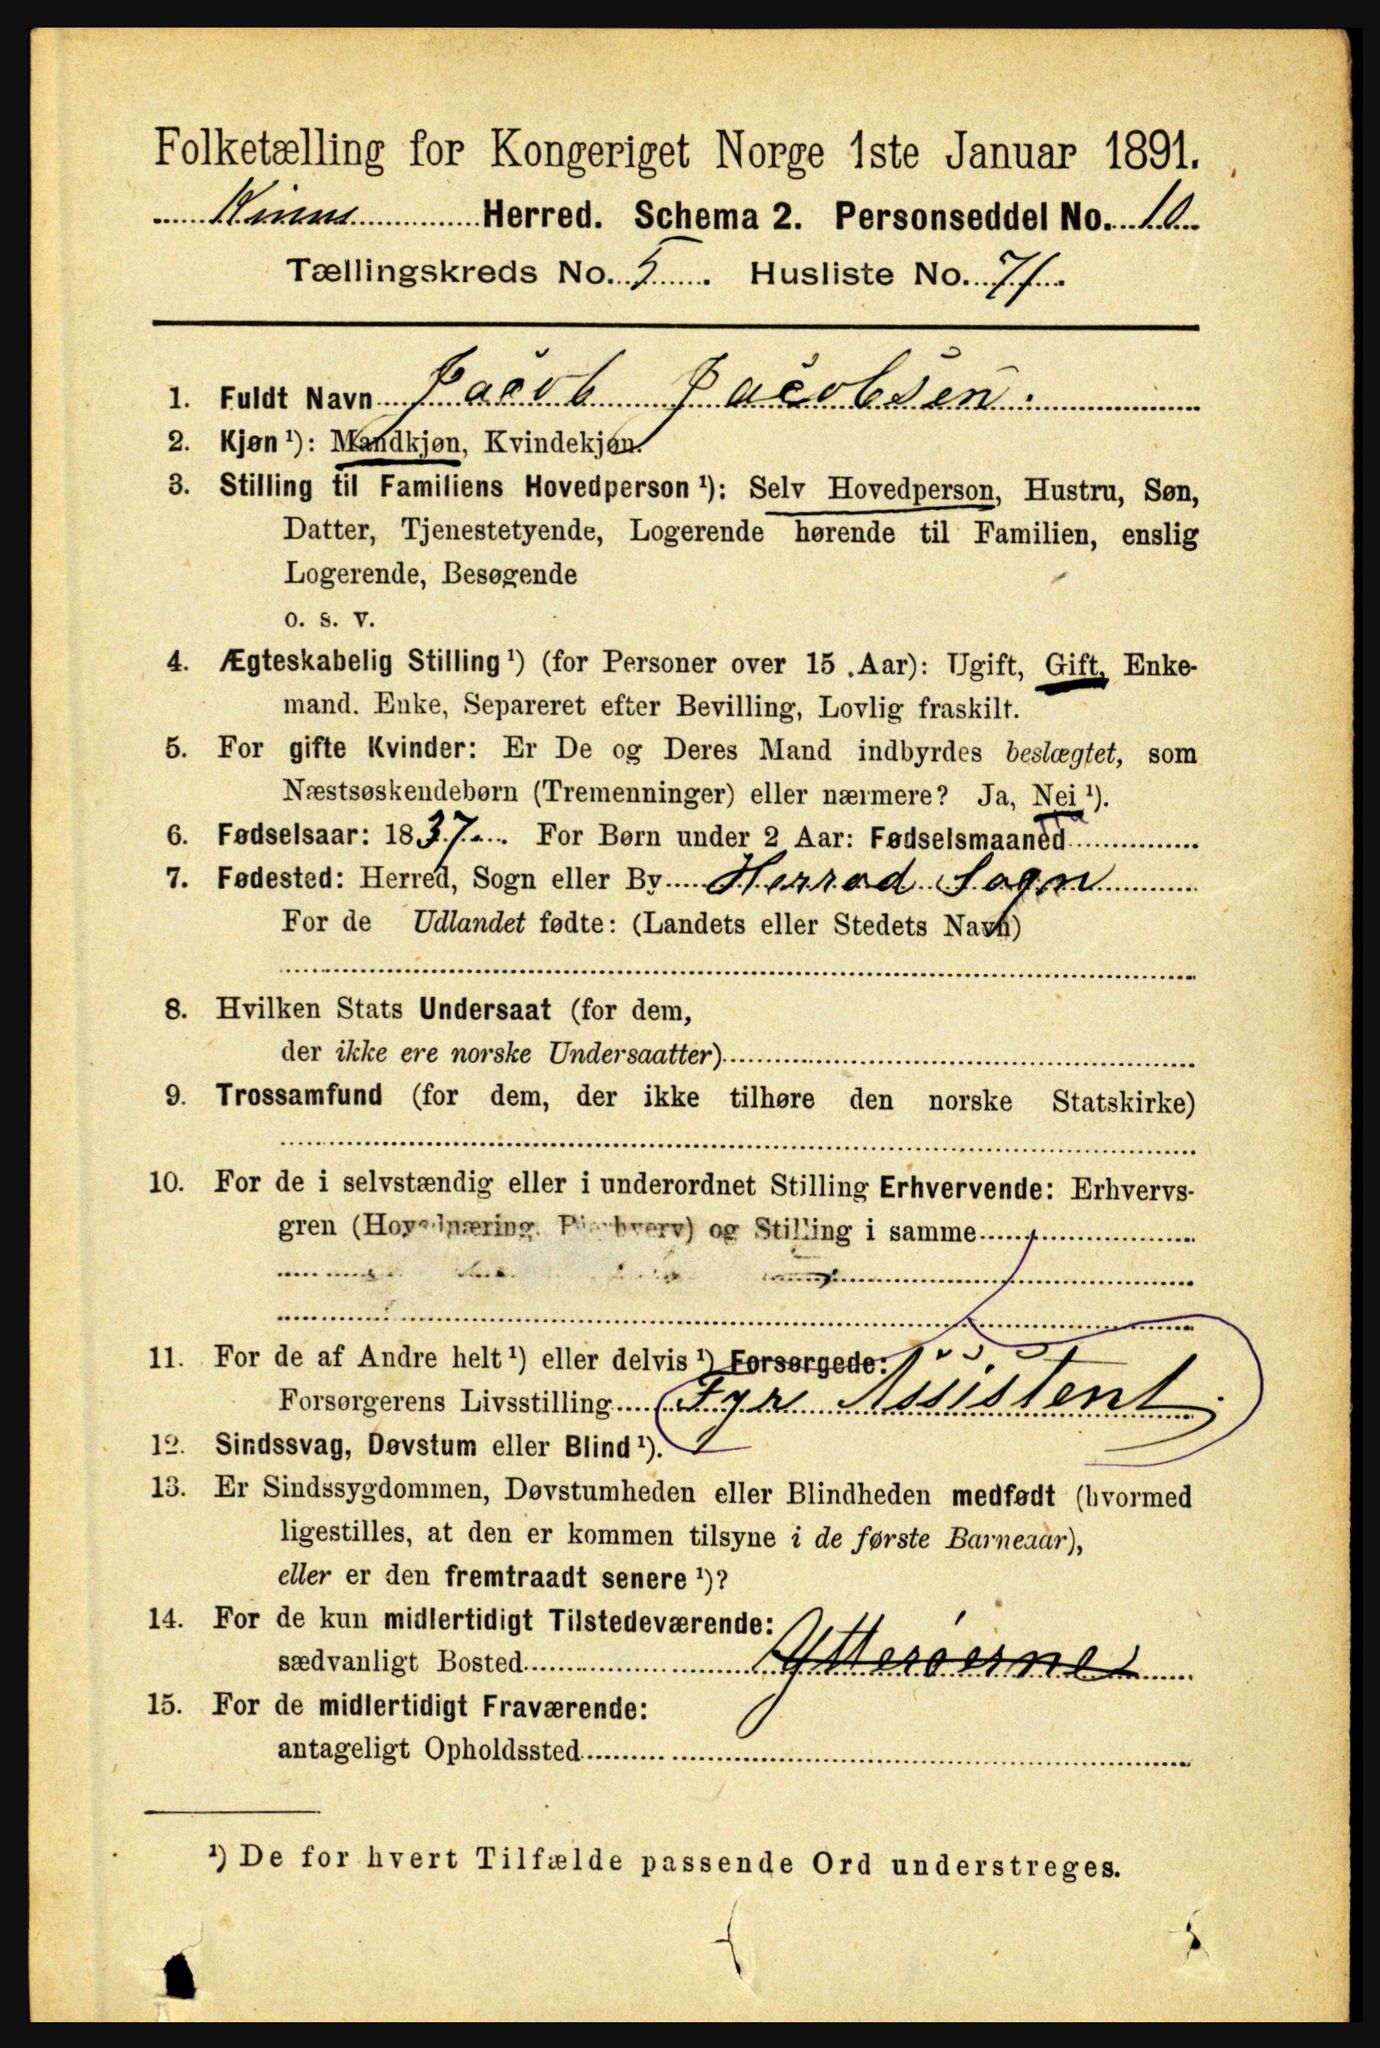 Folketælling for Kongeriget Norge 1ste Januar 1891.
Kinns Herred. Schema 2. Personseddel No. 10
Tællingskreds No. 5. Husliste No. 71.
1. Fuldt Navn Jacob Jacobsen.
2. Kjøn ¹): Mandkjøn, Kvindekjøn.
3. Stilling til Familiens Hovedperson ¹): Selv Hovedperson, Hustru, Søn,
Datter, Tjenestetyende, Logerende hørende til Familien, enslig
Logerende, Besøgende
o. s. v.
4. Ægteskabelig Stilling ¹) (for Personer over 15 Aar): Ugift, Gift, Enke-
mand. Enke, Separeret efter Bevilling, Lovlig fraskilt.
5. For gifte Kvinder: Er De og Deres Mand indbyrdes beslægtet, som
Næstsøskendebørn (Tremenninger) eller nærmere? Ja, Nei ¹).
6. Fødselsaar: 1837. For Børn under 2 Aar: Fødselsmaaned
7. Fødested: Herred, Sogn eller By Herrad Sogn
For de Udlandet fødte: (Landets eller Stedets Navn)
8. Hvilken Stats Undersaat (for dem,
der ikke ere norske Undersaatter)
9. Trossamfund (for dem, der ikke tilhøre den norske Statskirke)
10. For de i selvstændig eller i underordnet Stilling Erhvervende: Erhvervs-
gren (Hovednæring, Bierhverv) og Stilling i samme
11. For de af Andre helt ¹) eller delvis ¹) Forsørgede:
Forsørgerens Livsstilling Fyr Assistent.
12. Sindssvag, Døvstum eller Blind ¹).
13. Er Sindssygdommen, Døvstumheden eller Blindheden medfødt (hvormed
ligestilles, at den er kommen tilsyne i de første Barneaar),
eller er den fremtraadt senere ¹)?
14. For de kun midlertidigt Tilstedeværende:
sædvanligt Bosted Ytterøerne
15. For de midlertidigt Fraværende:
antageligt Opholdssted
¹) De for hvert Tilfælde passende Ord understreges.